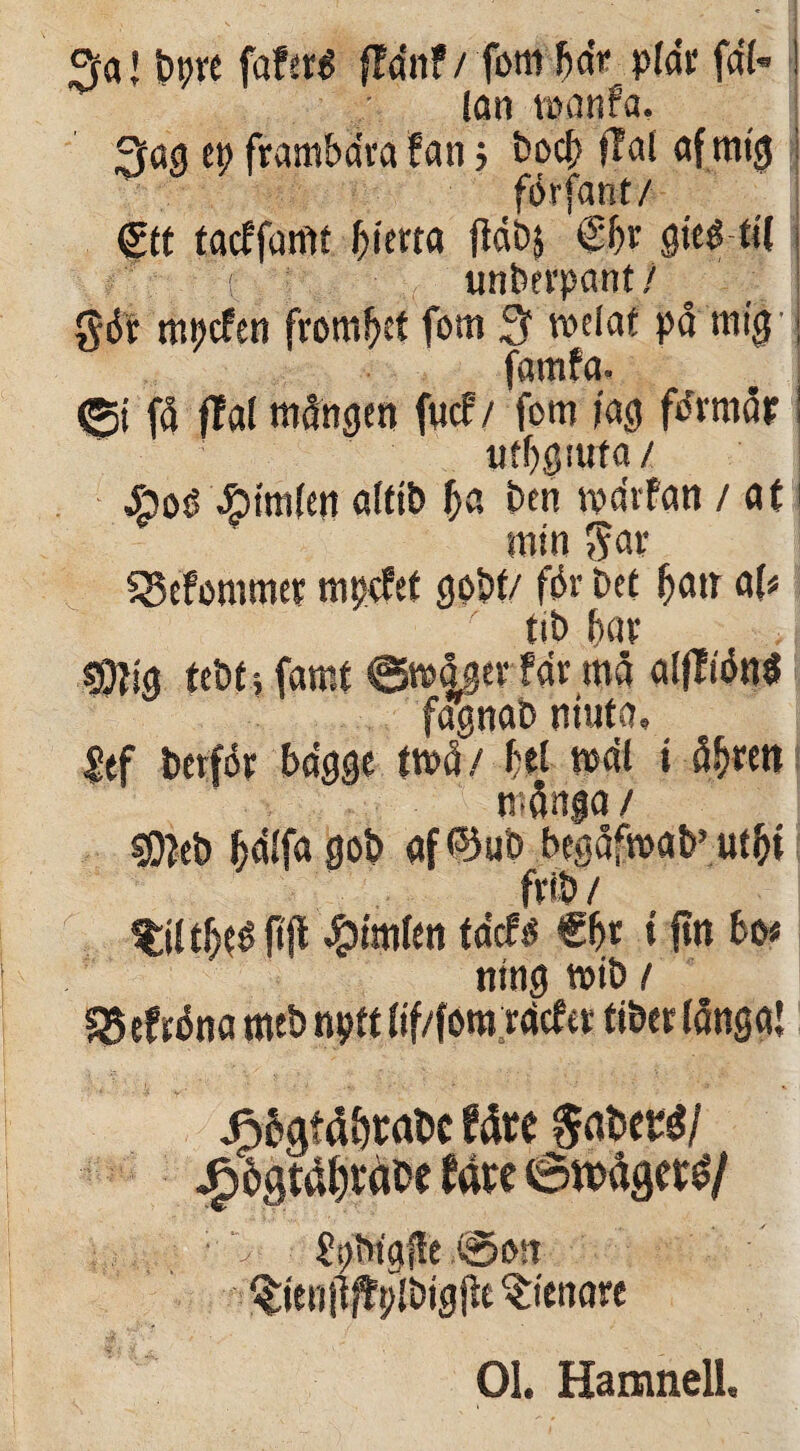 Ja! dyre sakers skänk / som här plär säl-
lan wanka.
Jag ey frambära kan; doch skal af mig
försant /
Ett tacksamt hierta städz Ehr gies til
underpant /
För mycken fromhet som J welat på mig
samka.
Si så skal mången suck / som jag förmår
uthgiuta /
Hos Himlen altid ha den wärkan / at
min Far
Bekommer mycket godt / för det han al-
tid har
Mig tedt; samt Swåger kär må alskiöns
fägnad niuta.
Lef derför bägge twå / hel wäl i åhren
många /
Med hälsa god af Gud begåfwad' uthi
frid /
Til thes sist Himlen täcks Ehr i sin bo-
ning wid /
Bekröna med nytt lif / som räcker tider långa!
Högtährade käre Faders /
Högtährade käre Swågers /
Lydigste Son
Tienstskyldigste Tienare
Ol. Hamnell.